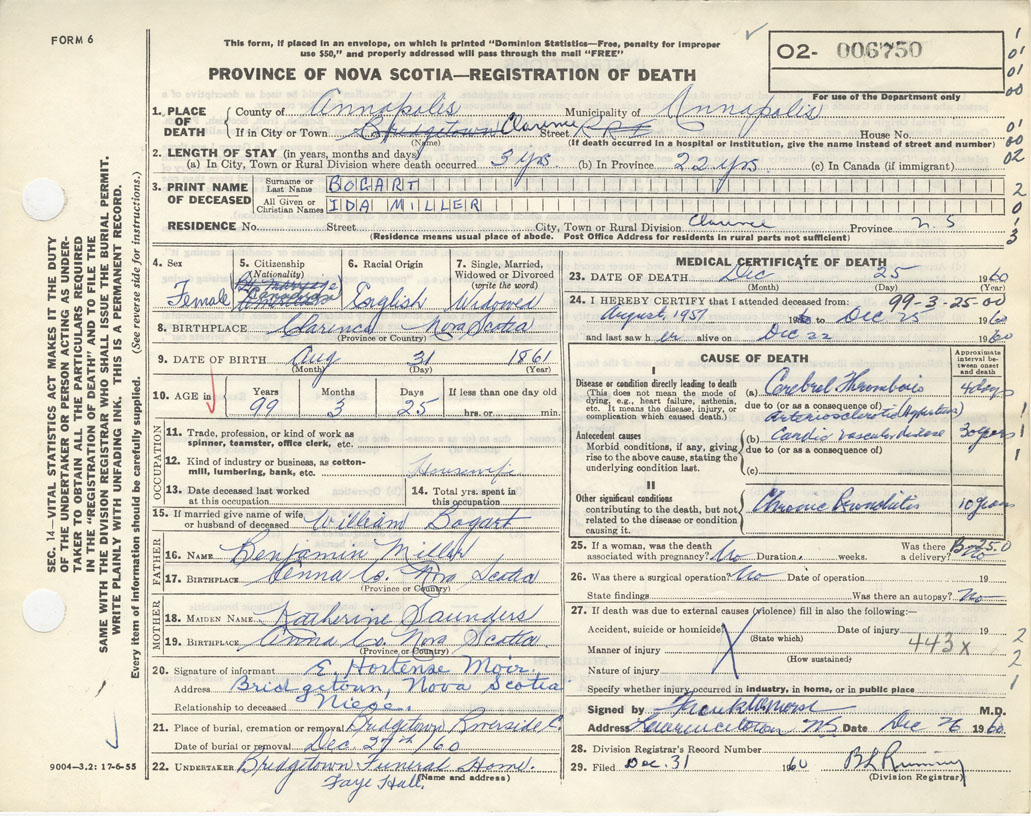 FORM 6
This form, if placed in an envelope, on which is printed "Dominion Statistics—Free, penalty for improper
use $50," and properly addressed will pass through the mail "FREE"
PROVINCE OF NOVA SCOTIA—REGISTRATION OF DEATH
02- 006750
For use of the Department only
1. PLACE OF DEATH
County of Annapolis Municipality of Annapolis
If in City or Town Bridgetown Clarence Street R R House No.
(Name) (If death occurred in a hospital or institution, give the name instead of street and number)
2. LENGTH OF STAY (in years, months and days)
(a) In City, Town or Rural Division where death occurred 3 yrs (b) In Province 22 yrs (c) In Canada (if immigrant)
3. PRINT NAME OF DECEASED
Surname or Last Name BOGART
All Given or Christian Names IDA MILLER
RESIDENCE No. Street City, Town or Rural Division Clarence Province N.S
(Residence means usual place of abode. Post Office Address for residents in rural parts not sufficient)
4. Sex Female
5. Citizenship (Nationality)
6. Racial Origin English
7. Single, Married, Widowed or Divorced (write the word) Widowed
8. BIRTHPLACE Clarence Nova Scotia
(Province or Country)
9. DATE OF BIRTH Aug 31 1861
(Month) (Day) (Year)
10. AGE in Years 99 Months 3 Days 25 If less than one day hrs. or min.
OCCUPATION
11. Trade, profession, or kind of work as spinner, teamster, office clerk, etc.
12. Kind of industry or business, as cotton-mill, lumbering, bank, etc. Housewife
13. Date deceased last worked at this occupation
14. Total yrs. spent in this occupation
15. If married give name of wife or husband of deceased William Bogart
FATHER
16. NAME Benjamin Miller
17. BIRTHPLACE Anna Co. Nova Scotia
(Province or Country)
MOTHER
18. MAIDEN NAME Katherine Saunders
19. BIRTHPLACE Anna Co. Nova Scotia
(Province or Country)
20. Signature of informant E. Hortense Moir.
Address Bridgetown, Nova Scotia
Relationship to deceased Niece.
21. Place of burial, cremation or removal Bridgetown Riverside C.
Date of burial or removal Dec. 27th/60
22. UNDERTAKER Bridgetown Funeral Home.
(Name and address)
Faye Hall.
MEDICAL CERTIFICATE OF DEATH
23. DATE OF DEATH Dec 25 1960
(Month) (Day) (Year)
99-3-25-00
24. I HEREBY CERTIFY that I attended deceased from:
August, 1957 19 to Dec 25 1960
and last saw her alive on Dec 22 1960
CAUSE OF DEATH
Approximate interval between onset and death
I
Disease or condition directly leading to death
(This does not mean the mode of dying, e.g., heart failure, asthenia, etc. It means the disease, injury, or complication which caused death.)
(a) Cerebral Thrombosis 4 days
due to (or as a consequence of)
Arteriosclerotic (Hypertensive)
Antecedent causes
Morbid conditions, if any, giving rise to the above cause, stating the underlying condition last.
(b) Cardio vascular disease 30 years
due to (or as a consequence of)
(c)
II
Other significant conditions
contributing to the death, but not related to the disease or condition causing it.
Chronic Bronchitis 10 years
25. If a woman, was the death associated with pregnancy? No Duration weeks. Was there a delivery? No
26. Was there a surgical operation? No Date of operation 19
State findings Was there an autopsy? No
27. If death was due to external causes (violence) fill in also the following:—
Accident, suicide or homicide (State which) Date of injury 19
Manner of injury (How sustained) 443X
Nature of injury
Specify whether injury occurred in industry, in home, or in public place
Signed by M.D.
Address Lawrencetown NS Date Dec 26 1960
28. Division Registrar's Record Number
29. Filed Dec. 31 1960
(Division Registrar)
SEC. 14—VITAL STATISTICS ACT MAKES IT THE DUTY
OF THE UNDERTAKER OR PERSON ACTING AS UNDER-
TAKER TO OBTAIN ALL THE PARTICULARS REQUIRED
IN THE "REGISTRATION OF DEATH" AND TO FILE THE
SAME WITH THE DIVISION REGISTRAR WHO SHALL ISSUE THE BURIAL PERMIT.
WRITE PLAINLY WITH UNFADING INK. THIS IS A PERMANENT RECORD.
Every item of information should be carefully supplied. (See reverse side for instructions.)
9004—3.2: 17-6-55